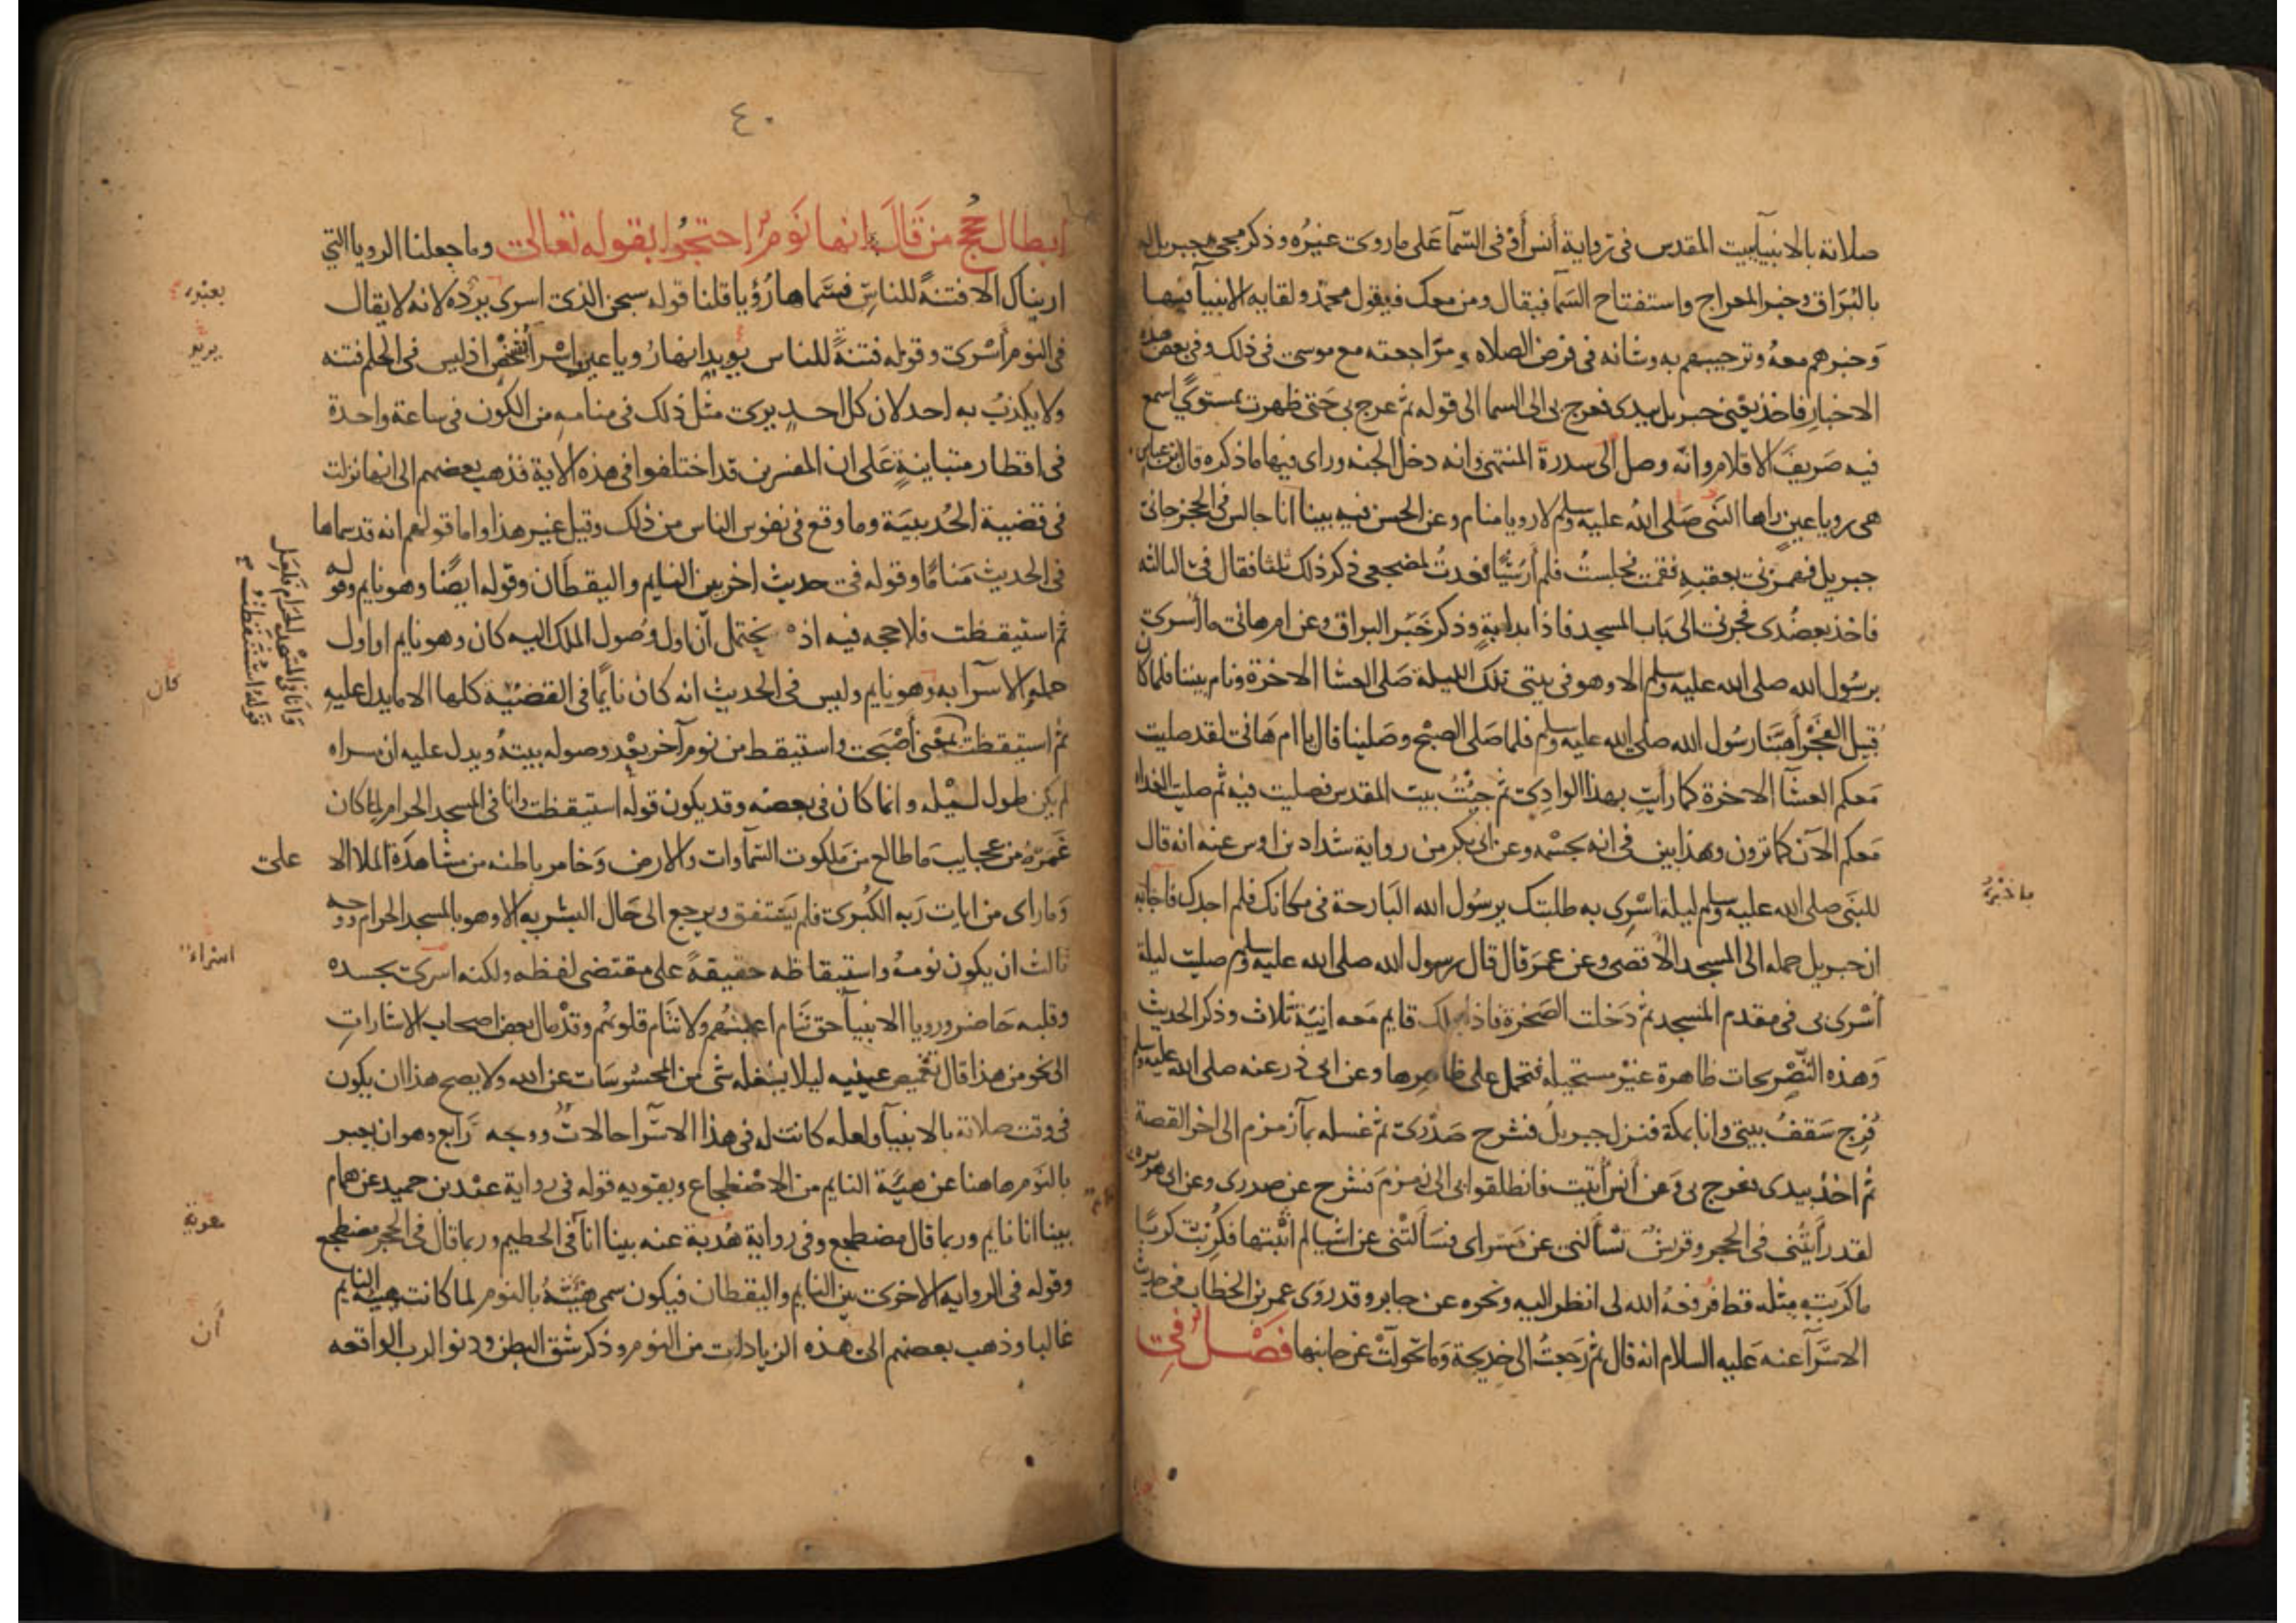 صلاته بالانبيا ببيت المقدس في رواية أنس أو في السمآ على ما روى غيره وذكر مجى جبريل له
بالبراق وخبر المعراج واستفتاح السما فيقال ومن معك فيقول محمد ولقايه الانبيآ فيها
وخبرهم معه وترحيبهم به وشانه في فرض الصلاه ومراجعته مع موسى في ذلك وفي بعض هذه
الاخبار فاخذ يعنى جبريل بيدى فعرج بي الى السما الى قوله ثم عرج بي حتى ظهرت بمستوى اسمع
فيه صريف الاقلام وانه وصل الى سدرة المنتهى وانه دخل الجنه وراى فيها ما ذكره قال ابن عباس
هي رويا عين راها النبى صلى الله عليه وسلم لا رويا منام وعن الحسن فيه بينا انا جالس في الحجر جانى
جبريل فهمزنى بعقبه فقمت فجلست فلم أر شيًا فعدت لمضجعى ذكر ذلك ثلثا فقال في الثالثه
فاخذ بعضدى فجرنى الى باب المسجد فاذا بدابة وذكر خبر البراق وعن ام هانى ما أسرى
برسول الله صلى الله عليه وسلم الا وهو في بيتى تلك الليلة صلى العشا الاخرة ونام بيننا فلما كان
قبيل الفجر أهبنا رسول الله صلى الله عليه وسلم فلما صلى الصبح وصلينا قال يا ام هانى لقد صليت
معكم العشآ الاخرة كما رأيت بهذا الوادى ثم جيت بيت المقدس فصليت فيه ثم صليت الغداة
معكم الآن كما ترون وهذا بين في انه بجسمه وعن ابى بكر من رواية شداد بن اوس عنه انه قال
للنبى صلى الله عليه وسلم ليلة اسرى به طلبتك يرسول الله البارحة في مكانك فلم اجدك فاجابه
ان جبريل حمله الى المسجد الأقصى وعن عمر قال قال رسول الله صلى الله عليه وسلم صليت ليلة
أسرى بى في مقدم المسجد ثم دخلت الصخرة فاذا بملك قايم معه انية ثلاث وذكر الحديث
وهذه التصريحات ظاهرة غير مستحيله فتحمل على ظاهرها وعن ابى ذر عنه صلى الله عليه وسلم
فرج سقف بيتى وانا بمكة فنزل جبريل فشرح صدرى ثم غسله بمآ زمزم الى اخر القصة
ثم اخذ بيدى فعرج بى وعن أنس أتيت فانطلقوا بى الى زمزم فشرح عن صدرى وعن ابى هريره
لقد رأيتنى في الحجر وقريش تسألنى عن مسراى فسألتنى عن اشيا لم اثبتها فكربت كربًا
ما كربت مثله قط فرفعه الله لى انظر اليه ونحوه عن جابر وقد روى عمر بن الخطاب في حديث
الاسرآ عنه عليه السلام انه قال ثم رجعت الى خديجة وما تحولت عن جانبها فصل في
باخبره
٤٠
ابطال حجج من قال انها نوم احتجوا بقوله تعالى وما جعلنا الرويا التي
اريناك الا فتنة للناس فسماها رؤيا قلنا قوله سبحن الذى اسرى يرده لانه لا يقال
في النوم أسرى وقوله فتنة للناس يويد انها رويا عين واسرآ بشخص اذ ليس في الحلم فتنه
ولا يكذب به احد لان كل احد يرى مثل ذلك في منامه من الكون في ساعة واحدة
في اقطار متباينة على ان المفسرين قد اختلفوا في هذه الاية فذهب بعضهم الى انها نزلت
في قضية الحديبية وما وقع في نفوس الناس من ذلك وقيل غير هذا واما قولهم انه قد سماها
في الحديث منامًا وقوله في حديث اخر بين النايم واليقظان وقوله ايضًا وهو نايم وقوله
ثم استيقظت فلا حجه فيه اذ يحتمل أن اول وصول الملك اليه كان وهو نايم او اول
حمله والاسرآ به وهو نايم وليس في الحديث انه كان نايمًا في القضية كلها الا ما يدل عليه
ثم استيقظت بمعنى أصبحت واستيقظ من نوم آخر بعد وصوله بيته ويدل عليه ان مسراه
لم يكن طول ليله وانما كان في بعضه وقد يكون قوله استيقظت وانا في المسجد الحرام لما كان
غمره من عجايب ما طالع من ملكوت السماوات والارض وخامر باطنه من مشاهدة الملا الا
على
وما راى من ايات ربه الكبرى فلم يستفق ويرجع الى حال البشريه الا وهو بالمسجد الحرام ووجه
ثالث ان يكون نومه واستيقاظه حقيقة على مقتضى لفظه ولكنه اسرى بجسده
وقلبه حاضر ورويا الانبيآ حق تنام اعينهم ولا تنام قلوبهم وقد مال بعض اصحاب الاشارات
الى نحو من هذا قال تغميض عينيه ليلا يشغله شى من المحسوسات عن الله ولا يصح هذا ان يكون
في وقت صلاته بالانبيآ ولعله كانت له في هذا الاسرآ حالات ووجه رابع وهو ان يعبر
بالنوم هاهنا عن هيئة النايم من الاضطجاع ويقويه قوله في رواية عبد بن حميد عن همام
بينا انا نايم وربما قال مضطجع وفي رواية هدبة عنه بينا انا في الحطيم وربما قال في الحجر مضطجع
وقوله في الروايه الاخرى بين النايم واليقظان فيكون سمى هيئته بالنوم لما كانت هيئة النايم
غالبا وذهب بعضهم الى هذه الزيادات من النوم وذكر شق البطن ودنو الرب الواقعه
كان
وانا في المسجد الحرام فلعل
قوله استيقظت
اسراء
أن